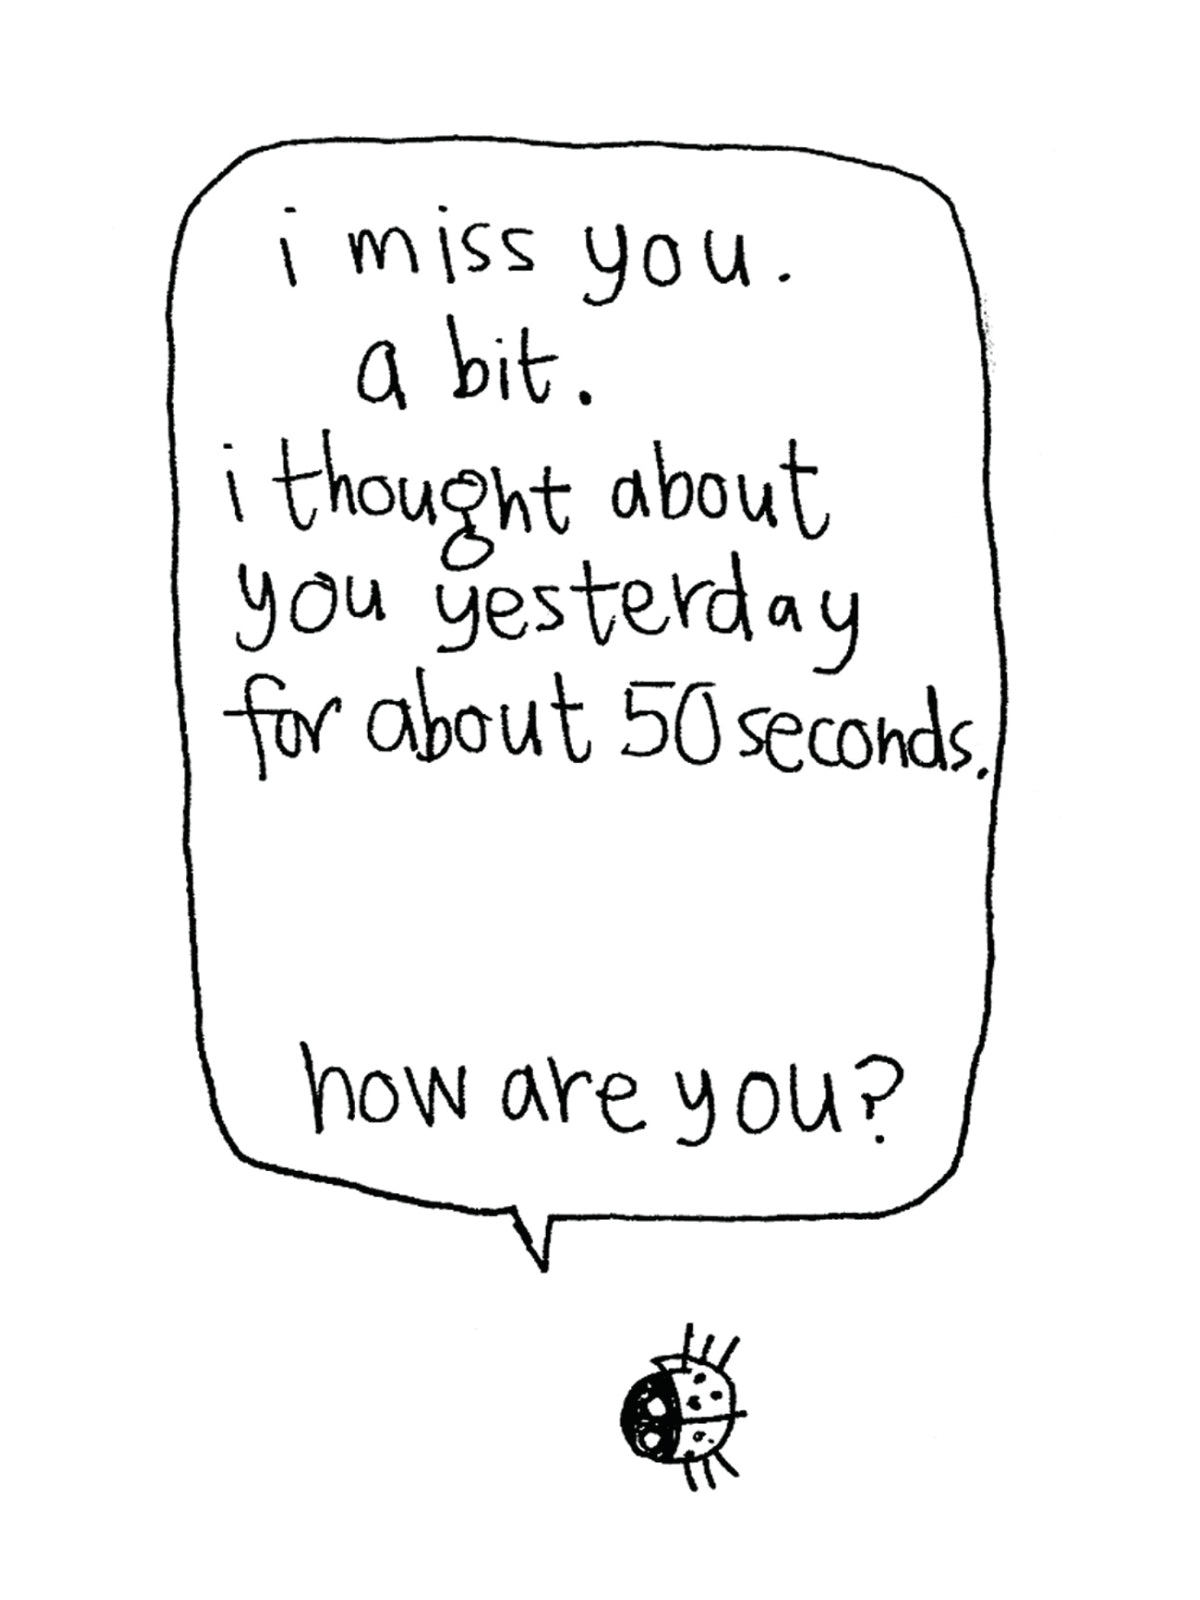 i miss you.
a bit.
i thought about
you yesterday
for about 50 seconds.
how are you?